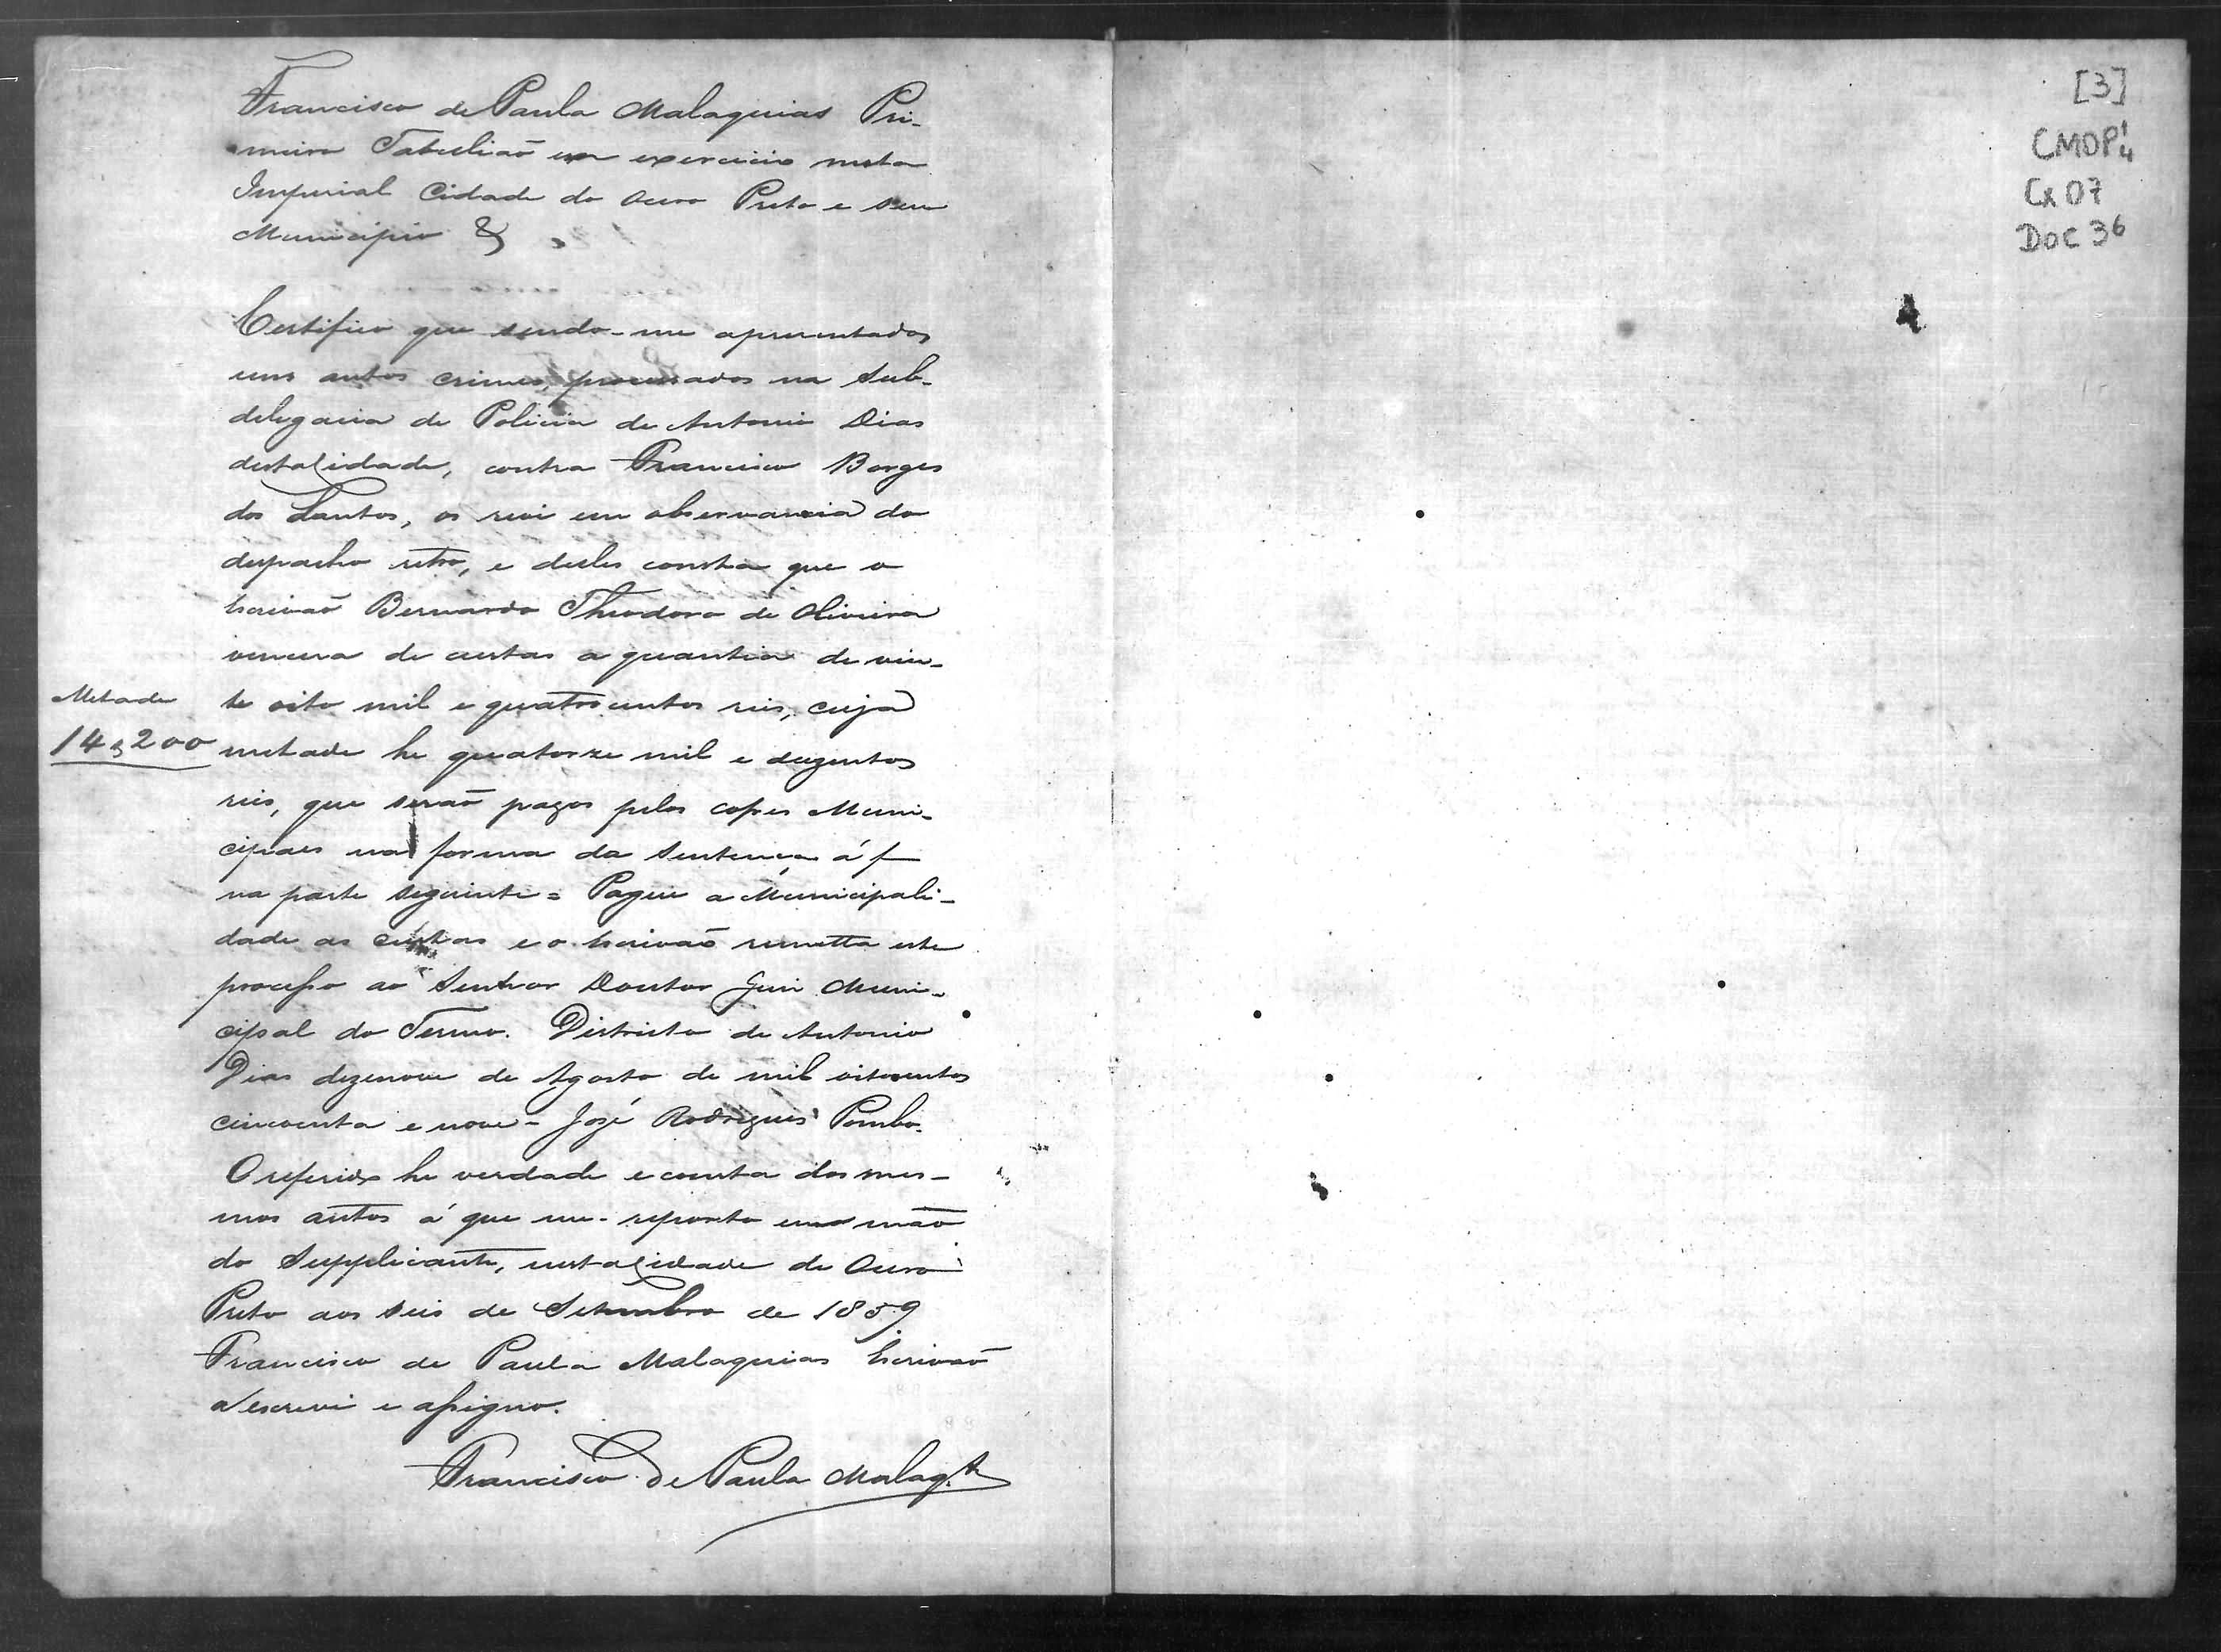 Francisco de Paula Malaquias Pri-
meiro Tabelião em exercicio nesta
Imperial Cidade do Ouro Preto e seu
Municipio &
Certifico que sendo-me apresentados
uns autos crimes, processados na Sub-
delegacia de Policia de Antonio Dias
desta Cidade, contra Francisco Borges
dos Santos, os revi em observancia do
despacho retro, e delles consta que o
Escrivaõ Bernardo Theodoro de Oliveira
vencera de custas a quantia de vin-
te oito mil e quatrocentos reis, cuja
Metade
14$200
metade he quatorze mil e duzentos
reis, que seraõ pagos pelos cofres Muni-
cipaes na forma da Sentença á f
na parte seguinte = Pague a Municipali-
dade as custas e o Escrivaõ remetta este
processo ao Senhor Doutor Juis Muni-
cipal do Termo. Districto de Antonio
Dias dezenove de Agosto de mil oitocentos
cincoenta e nove - José Rodrigues Pombo.
O referido he verdade e consta dos mes-
mos autos á que me-reporto em maõ
do Supplicante, nesta Cidade de Ouro
Preto aos seis de Setembro de 1859
Francisco de Paula Malaquias Escrivaõ
o escrevi e assigno.
Francisco de Paula Malaq.s
[3]
CMOP
Cx 07
DOC 36